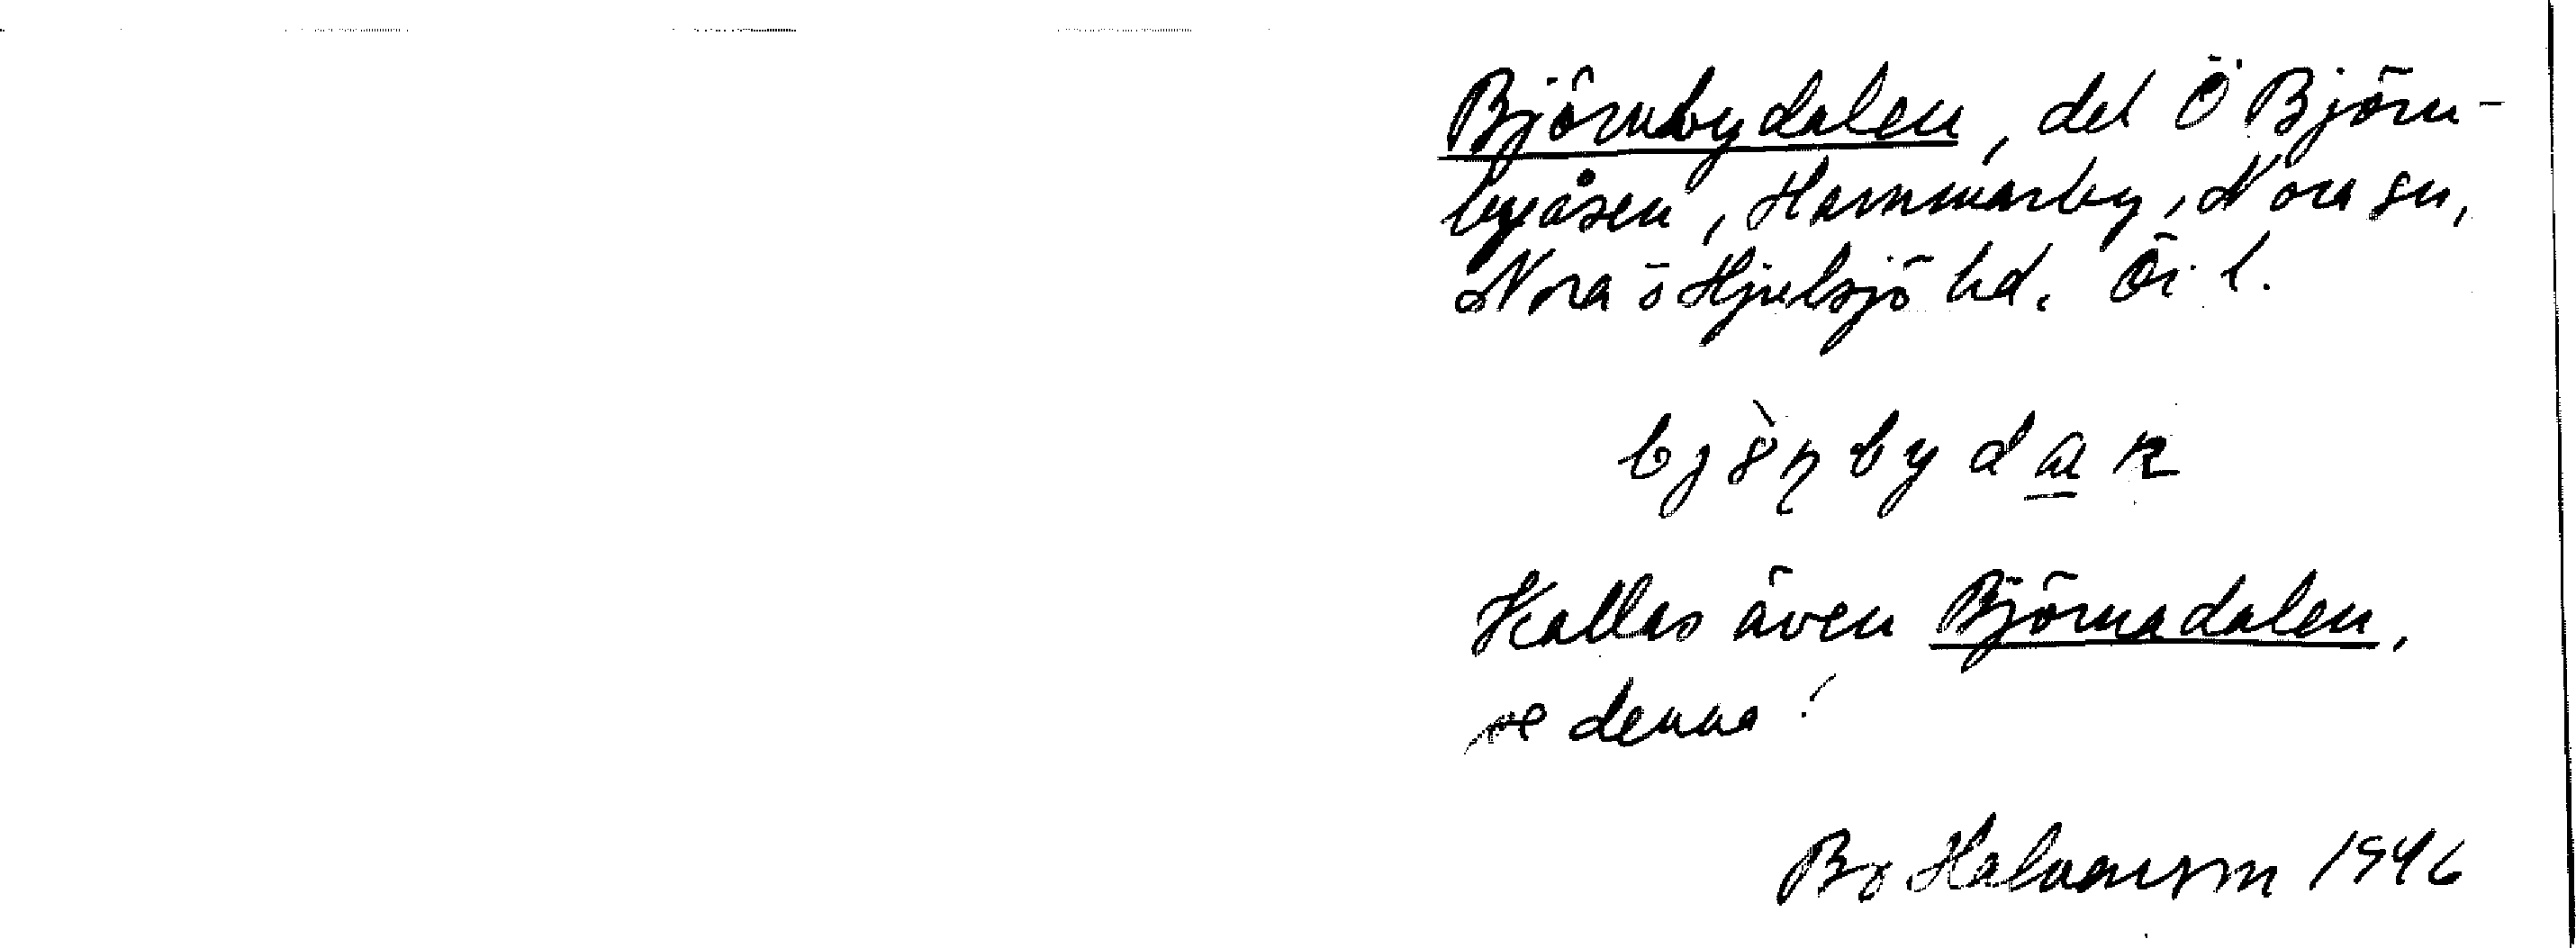 Björnbydalen, del Ö Björn-
byåsen, Hammarby, Nora sn,
Nora o Hjulsjö hd. Ör. l.
Kallas även Björnadalen,
se denna!
Bo Halvarson 1946